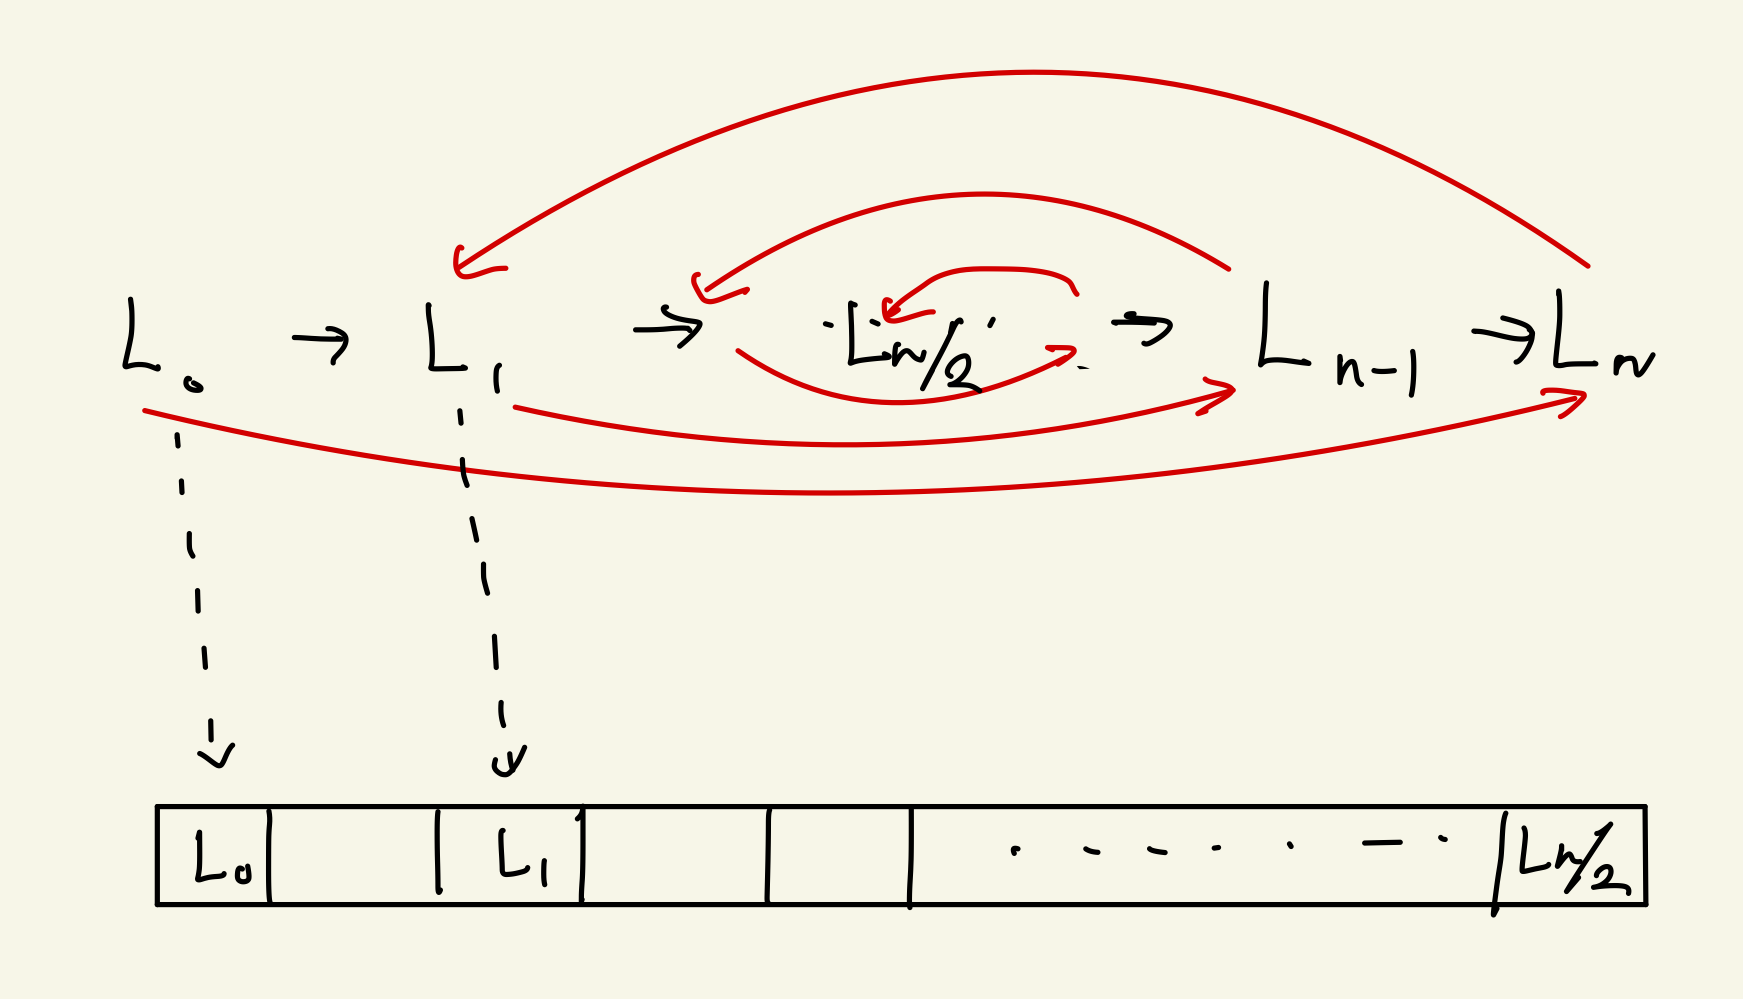 L₀ → L₁ → . - L n/2 . - → L n-1 → L n
L₀ L₁ . - - - . — . L n/2